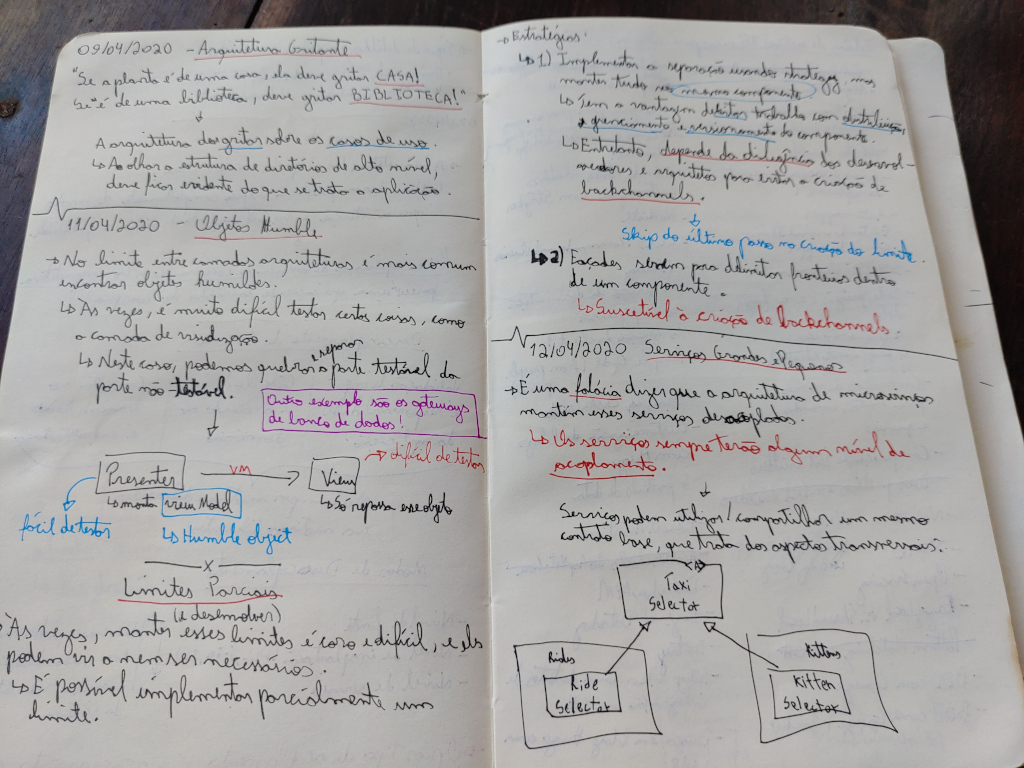 09/04/2020 - Arquitetura Gritante
"Se a planta é de uma casa, ela deve gritar CASA!
Se é de uma biblioteca, deve gritar BIBLIOTECA!"
↓
A arquitetura deve gritar sobre os casos de uso.
↳ Ao olhar a estrutura de diretórios de alto nível,
deve ficar evidente do que se trata a aplicação.
11/04/2020 - Objetos Humble
→ No limite entre camadas arquiteturas é mais comum
encontrar objetos humildes.
↳ Às vezes, é muito difícil testar certas coisas, como
a camada de visualização.
↳ Neste caso, podemos quebrar e separar a parte testável da
parte não testável.
Outro exemplo são os gateways
de banco de dados!
↓
Presenter VM → View → difícil de testar
↳ monta view Model ↳ Só repassa esse objeto
fácil de testar ↳ Humble object
x
Limites Parciais
(e desenvolver)
Às vezes, manter esses limites é caro e difícil, e eles
podem vir a nem ser necessários.
↳ É possível implementar parcialmente um
limite.
→ Estratégias:
↳ 1) Implementar a separação usando strategy, mas
manter tudo no mesmo componente
↳ Tem a vantagem de trabalho com distribuição,
gerenciamento e versionamento do componente.
↳ Entretanto, depende da diligência dos desenvol-
vedores e arquitetos para evitar a criação de
backchannels.
↓
Skip do último passo na criação do limite.
↳ 2) Façades servem para delimitar fronteiras dentro
de um componente.
↳ Suscetível à criação de backchannels.
12/04/2020 Serviços Grandes e Pequenos
→ É uma falácia dizer que a arquitetura de microserviços
mantém esses serviços desacoplados.
↳ Os serviços sempre terão algum nível de
acoplamento.
↓
Serviços podem utilizar/compartilhar um mesmo
contrato base, que trata dos aspectos transversais:
<A>
Taxi
Selector
Rides
Ride
Selector
Kittens
Kitten
Selector